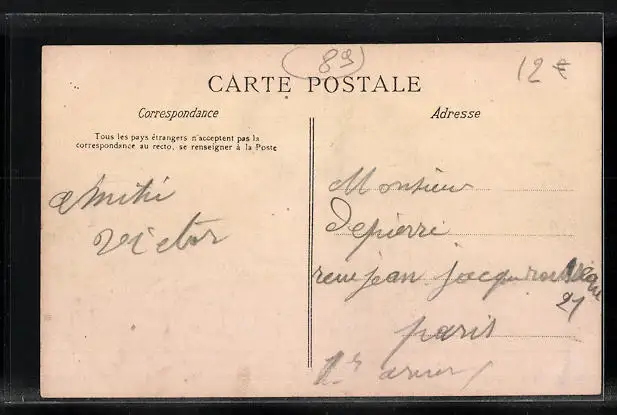 89
12 €
CARTE POSTALE
Correspondance
Adresse
Tous les pays étrangers n'acceptent pas la
correspondance au recto, se renseigner à la Poste
amitié
Victor
Monsieur
Depierre
rue jean jacqu rousseau
21
paris
1er